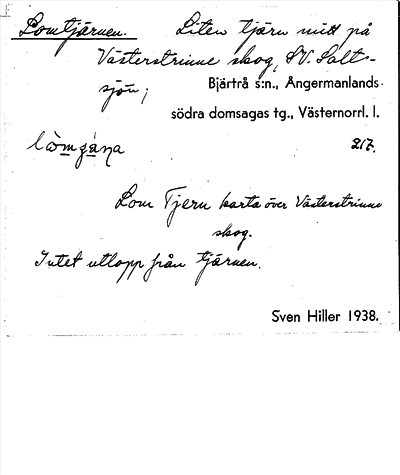 Lomtjärnen. Liten tjärn mitt på
Västerstrinne skog, SV. Salt-
sjön;
Bjärtrå s:n., Ångermanlands
södra domsagas tg., Västernorrl. l.
217.
Lom Tjern karta över Västerstrinne
skog.
Intet utlopp från tjärnen.
Sven Hiller 1938.